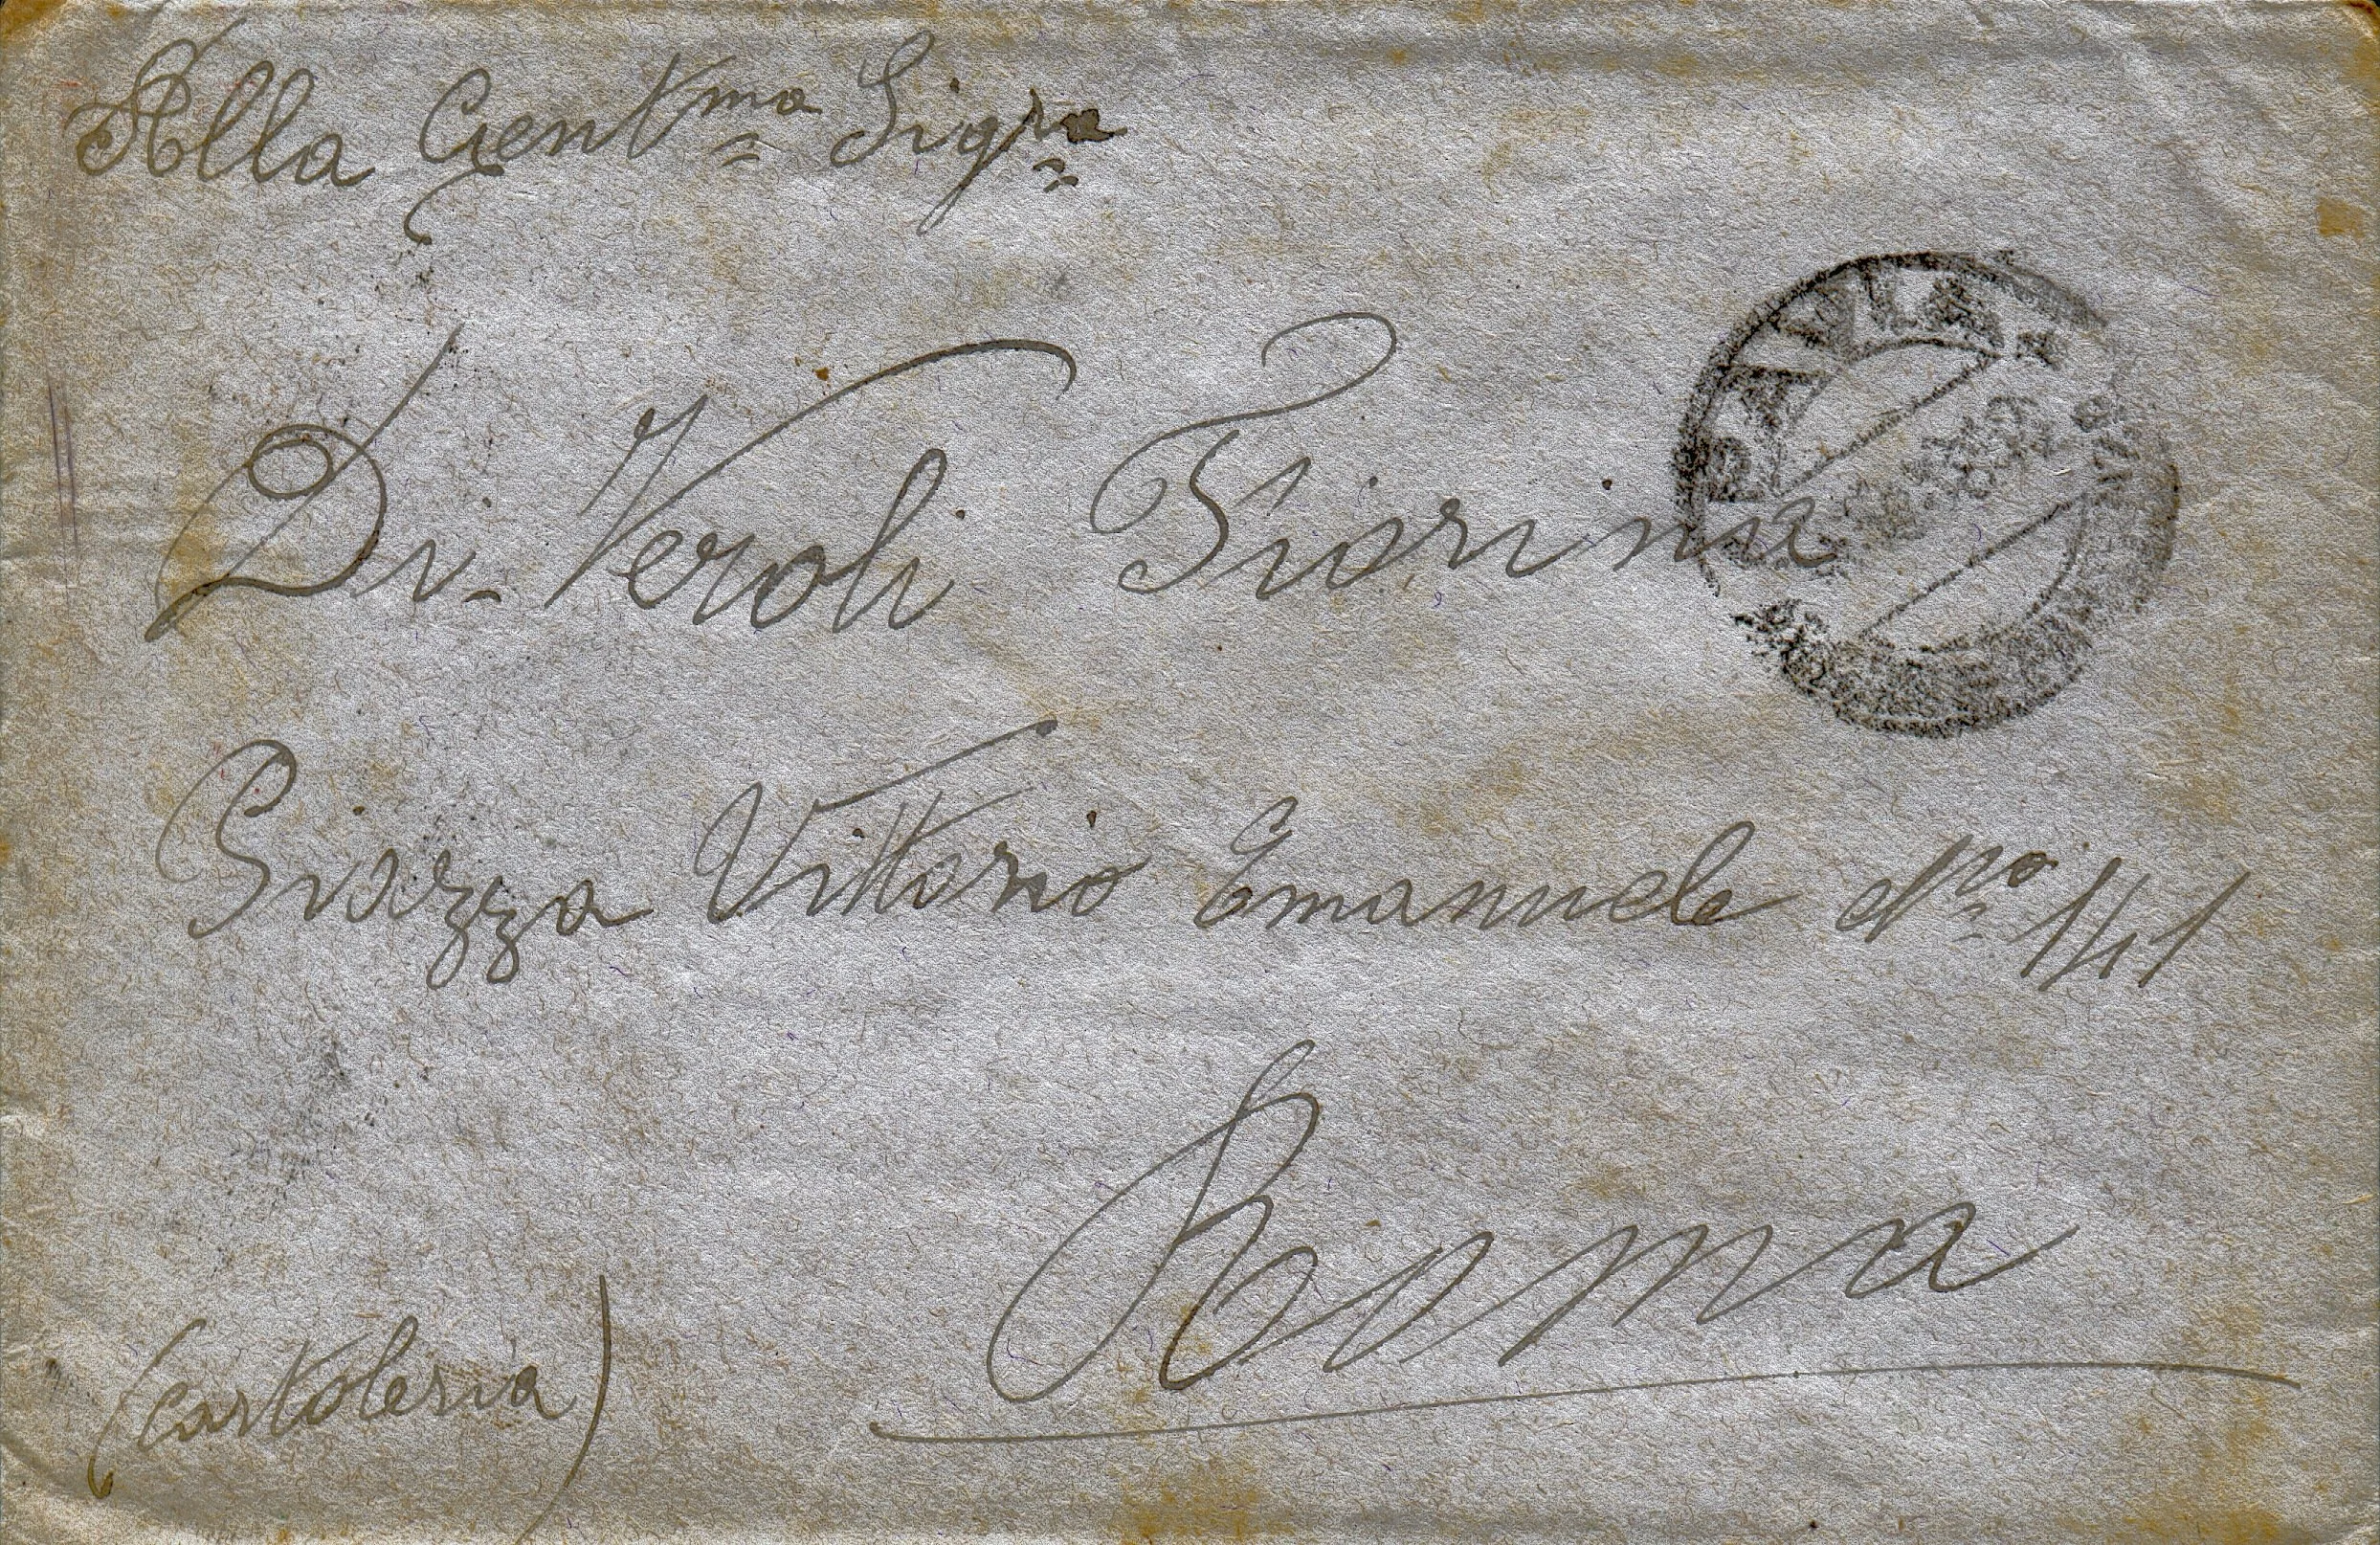 Alla Gentma Sigra
Di-Veroli Fiorina
Piazza Vittorio Emanuele No 141
Roma
(cartoleria)